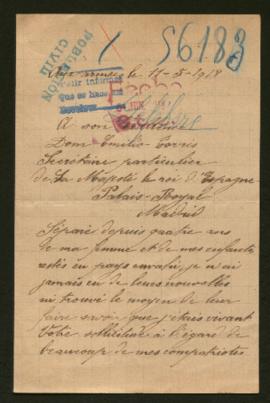 56183
POBLACION
CIVIL
le 11-5-1918
A son
Dom Emilio Torres
Secrétaire particulier
de Sa Majesté le roi d'Espagne
Palais-Royal
Madrid
Séparé depuis quatre ans
de ma femme et de mes enfants
restés en pays envahi, je n'ai
jamais eu de leurs nouvelles
ni trouvé le moyen de leur
faire savoir que j'étais vivant
Votre sollicitude à l'égard de
beaucoup de mes compatriotes